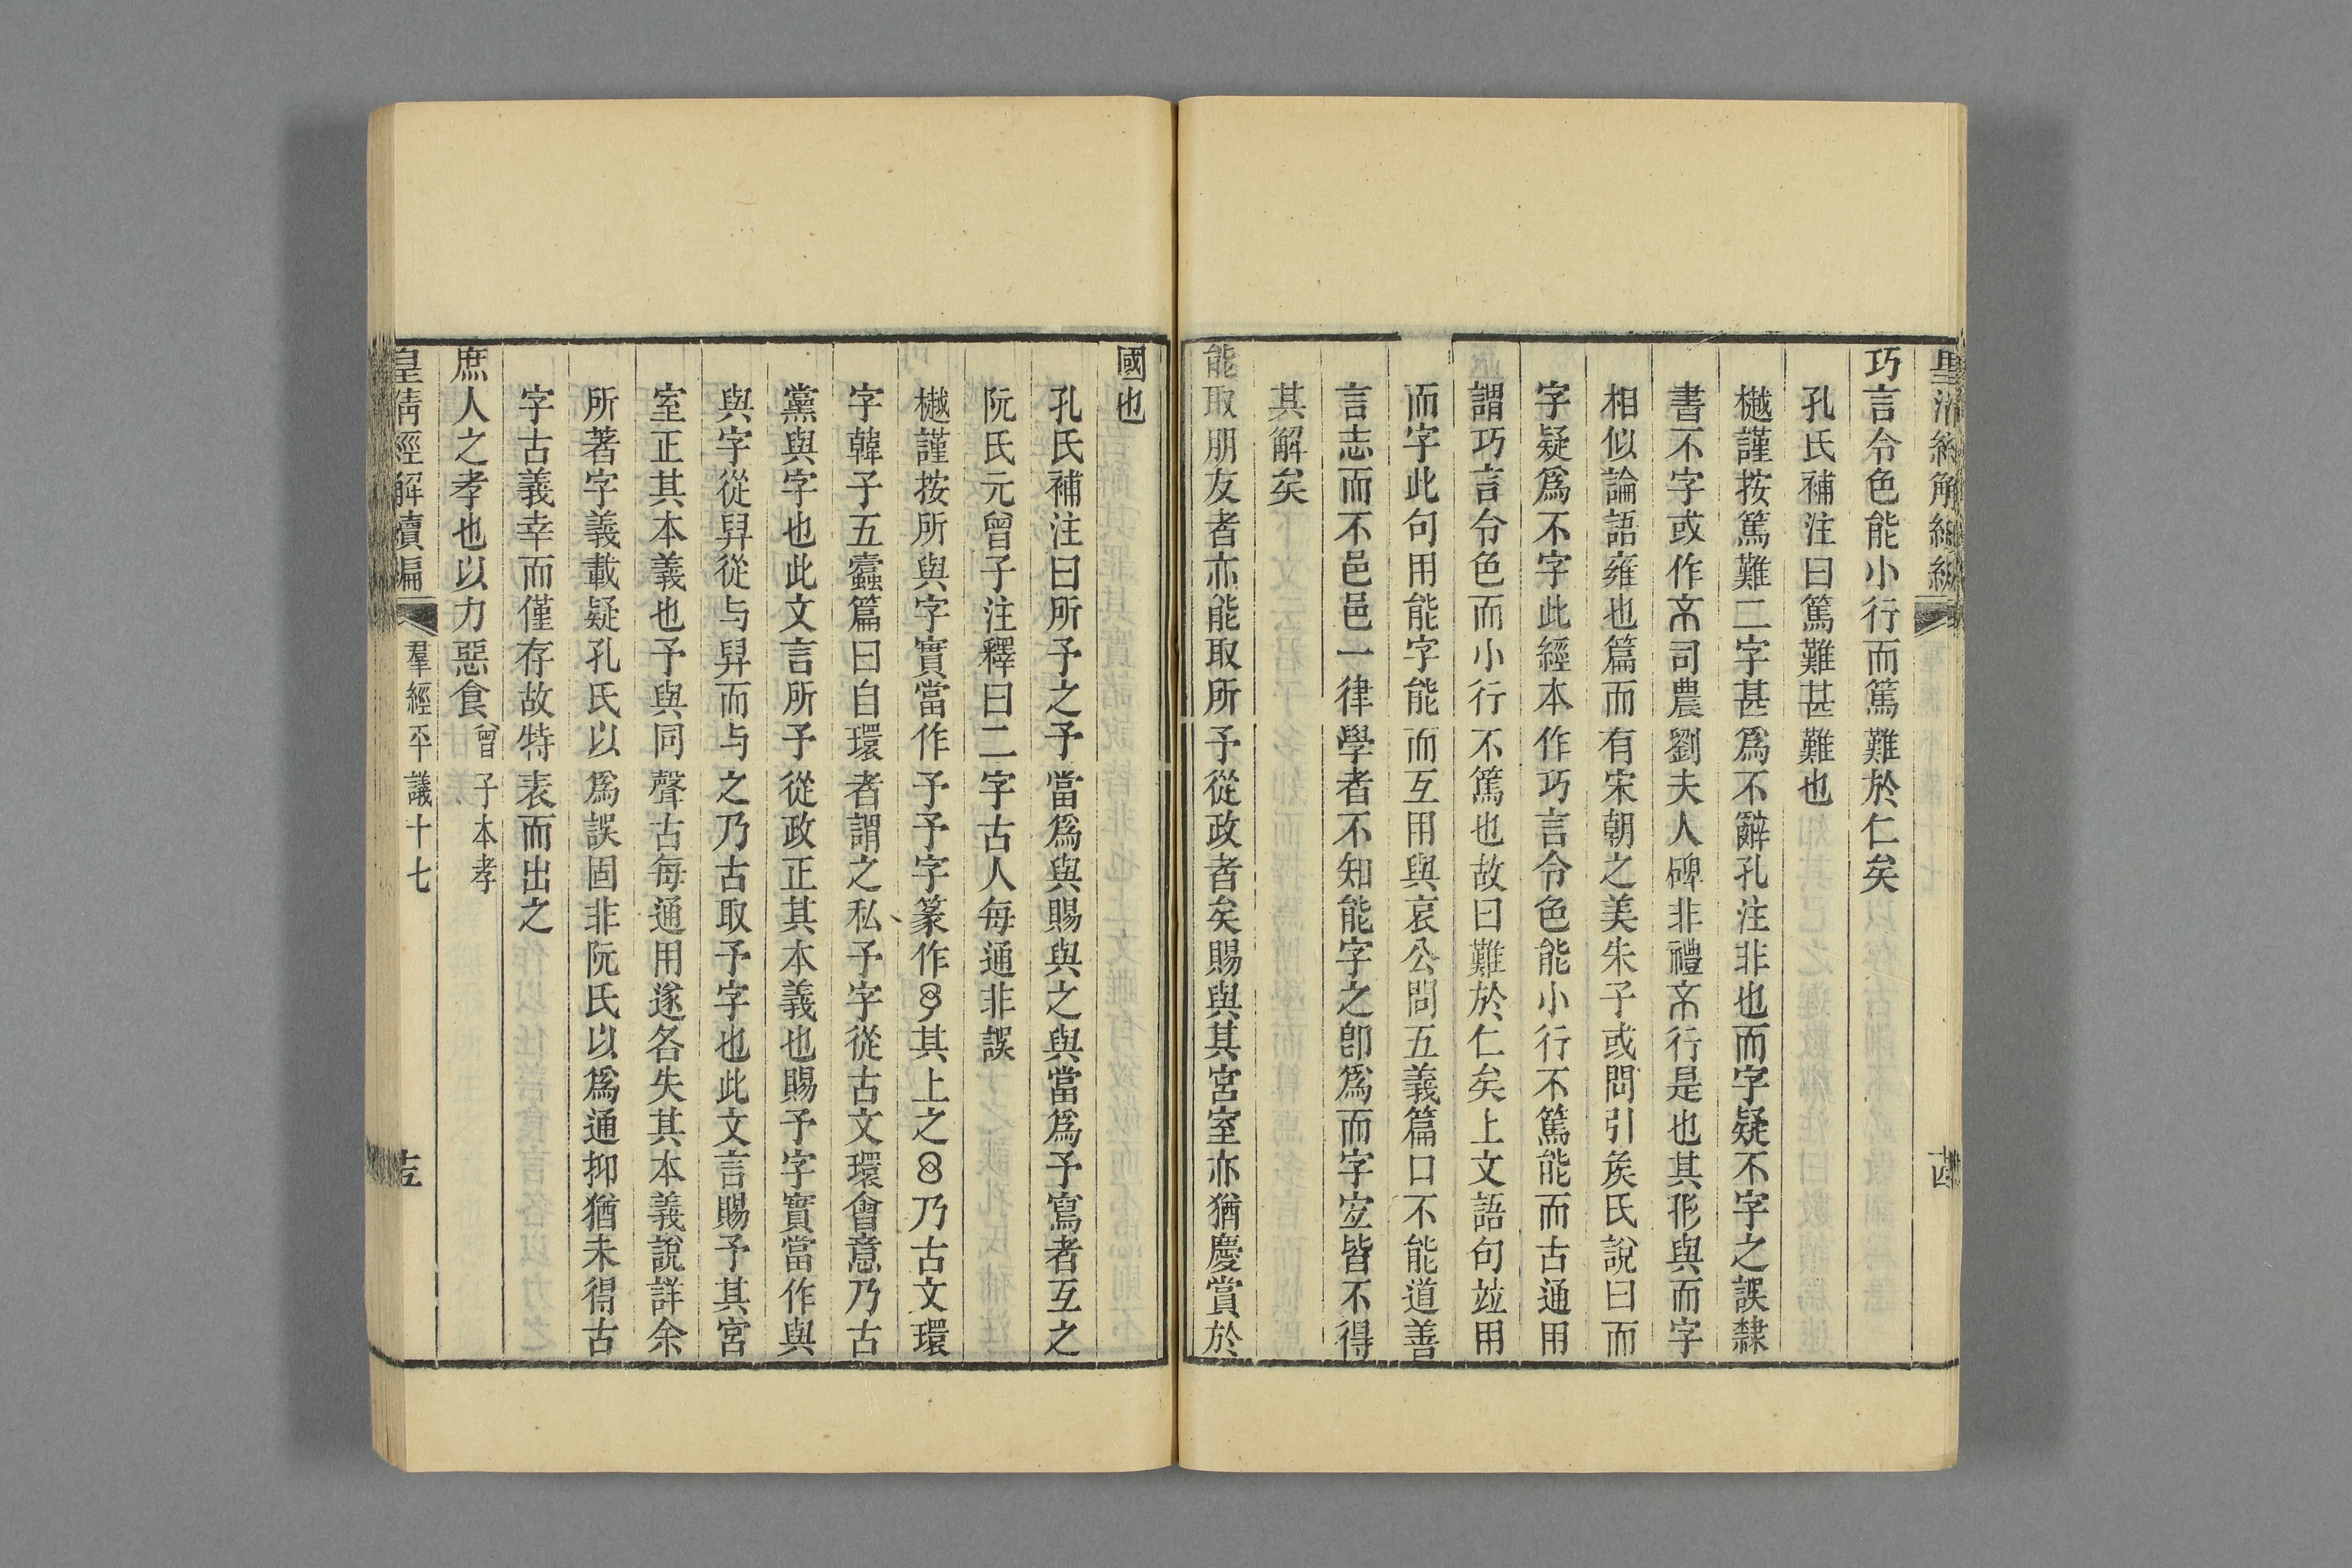 皇清經解續編
十四
巧言令色能小行而篤難於仁矣
孔氏補注曰篤難甚難也
樾謹按篤難二字甚爲不辭孔注非也而字疑不字之誤隸
書不字或作𠀚司農劉夫人碑非禮𠀚行是也其形與而字
相似論語雍也篇而有宋朝之美朱子或問引矦氏說曰而
字疑爲不字此經本作巧言令色能小行不篤能而古通用
謂巧言令色而小行不篤也故曰難於仁矣上文語句竝用
而字此句用能字能而互用與哀公問五義篇口不能道善
言志而不邑邑一律學者不知能字之卽爲而字宐皆不得
其解矣
能取朋友者亦能取所予從政者矣賜與其宮室亦猶慶賞於
國也
孔氏補注曰所予之予當爲與賜與之與當爲予寫者互之
阮氏元曾子注釋曰二字古人每通非誤
樾謹按所與字實當作予予字篆作𠄔其上之8乃古文環
字韓子五蠹篇曰自環者謂之私予字從古文環會意乃古
黨與字也此文言所予從政正其本義也賜予字實當作與
與字從舁從与舁而与之乃古取予字也此文言賜予其宮
室正其本義也予與同聲古每通用遂各失其本義說詳余
所著字義載疑孔氏以爲誤固非阮氏以爲通抑猶未得古
字古義幸而僅存故特表而出之
庶人之孝也以力惡食曾子本孝
皇清經解續編
羣經平議十七
十五